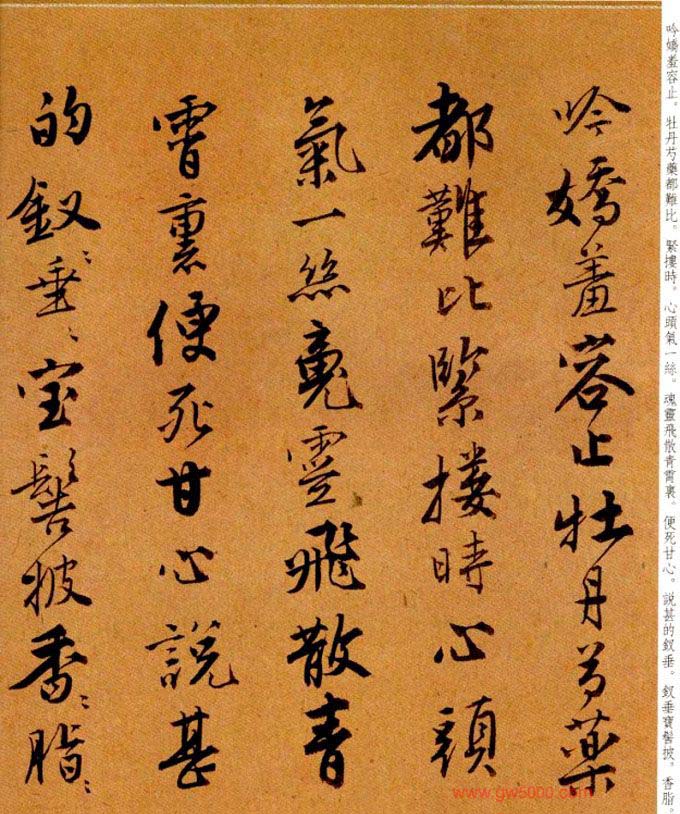 吟嬌羞容止。牡丹芍藥都難比。緊摟時。心頭氣一絲。魂靈飛散青霄裏。便死甘心。説甚的釵垂。釵垂寶髻披。香脂。
吟嬌羞容止牡丹芍藥
都難比緊摟時心頭
氣一絲魂靈飛散青
霄裏便死甘心說甚
的釵〻垂〻宝髻披香〻脂〻
www.gw5000.com